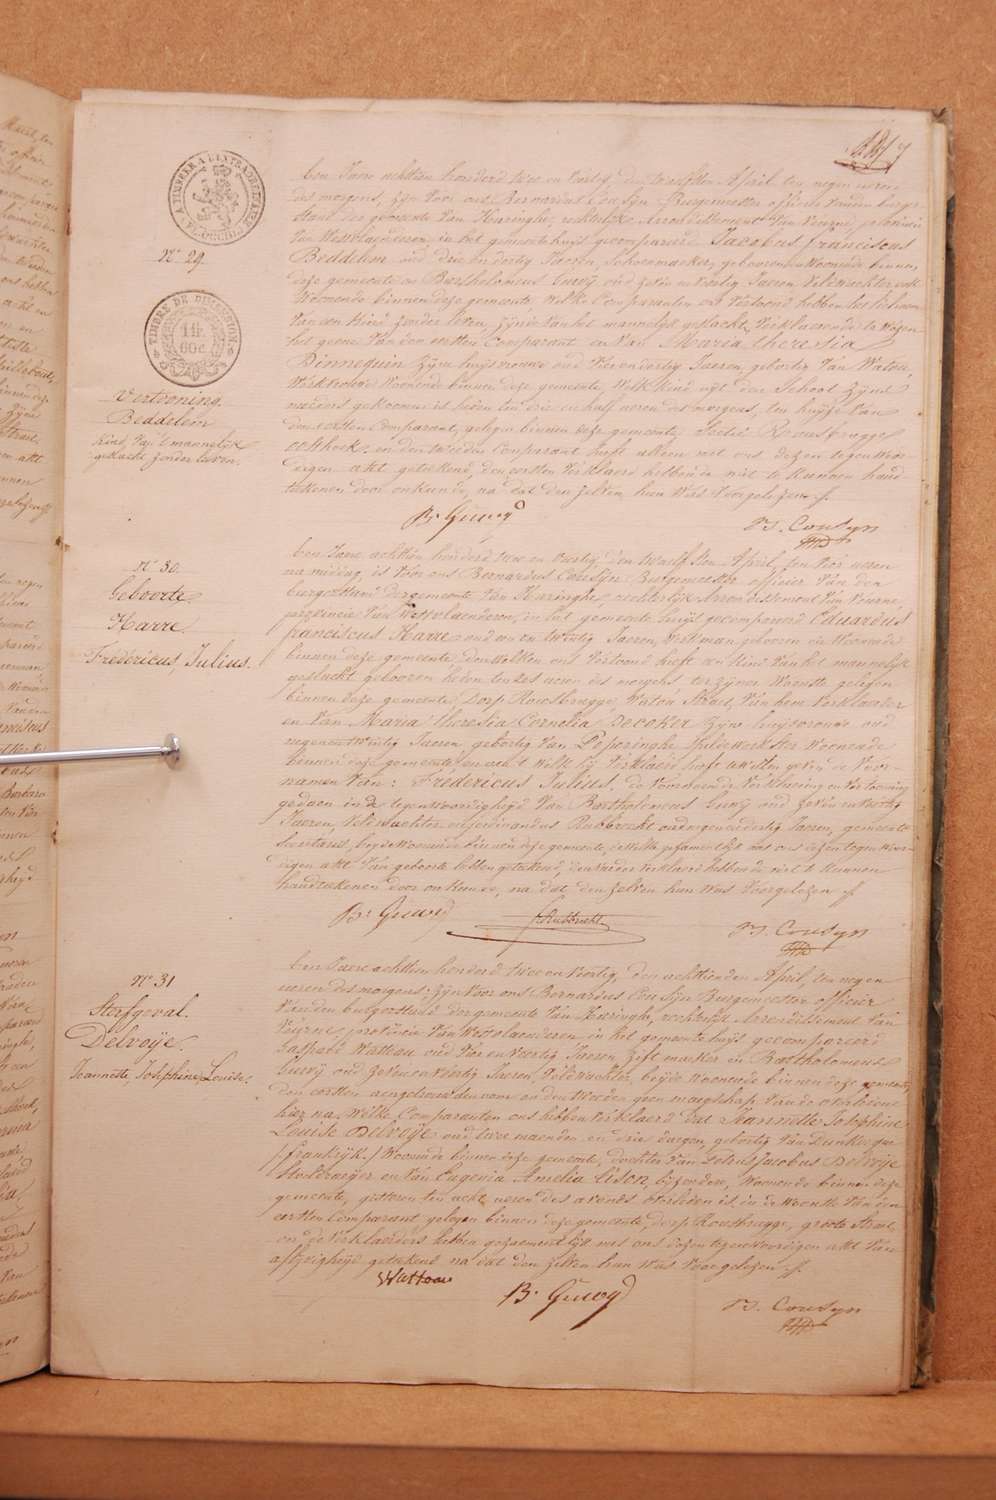 TIMBRE A L'EXTRAORDINAIRE
FL. OCCID.
N° 29
TIMBRE DE DIMENSION
1 fr.
60 c.
Vertooning
Beddelem
Kind van 't mannelijk
geslacht zonder leven.
Den Jaere achttien honderd twee en veertig, den twaelfsten April, ten negen ueren
des morgens, zijn voor ons Bernardus Cousijn Burgemeester officier van den burger-
stand der gemeente van Haringhe, rechterlijk Arrondissement van Veurne, provincie
van Westvlaenderen, in het gemeente huijs gecompareerd Jacobus franciscus
Beddelem oud drie en dertig Jaeren, Schoenmaeker, gebooren en Woonende binnen
deze gemeente en Bartholomeus Guwÿ oud zeven en veertig Jaeren, Veldwachter, ook
Woonende binnen deze gemeente, Welke Comparanten ons vertoond hebben het lichaem
van een Kind zonder leven, zijnde van het mannelijk geslacht, verklaerende te wezen
het geene van den eersten Comparant en van Maria theresia
Dinnequin zijne huijsvrouwe oud vier en dertig Jaeren, gebortig van Watou,
Woonende binnen deze gemeente, Welk Kind uijt den Schoot zijner
moeders gekoomen is heden ten drie en half ueren des morgens, ten huijze van
den eersten Comparant, gelegen binnen deze gemeente, Sectie Rousbrugge
oosthoek, en den tweeden Comparant heeft alleen met ons dezen tegenwoor-
digen akt geteekend, den eersten verklaerd hebbende niet te kunnen hand-
teekenen door onkunde, na dat den zelven hun was voorgelezen ./.
B. Guwÿ
B. Cousyn
N° 30.
Geboorte.
Harre.
Fredericus, Julius.
Den Jaere achttien honderd twee en veertig, den twaelfsten April, ten vier ueren
na middag, is voor ons Bernardus Cousijn Burgemeester officier van den
burgerstand der gemeente van Haringhe, rechterlijk Arrondissement van Veurne,
provincie van Westvlaenderen, in het gemeente huijs gecompareerd Eduardus
franciscus Harre, oud een en veertig Jaeren, gebooren en Woonende
binnen deze gemeente, den Welken ons vertoond heeft een Kind van het mannelijk
geslacht gebooren heden ten zes ueren des morgens ter zijner Woonste gelegen
binnen deze gemeente, Dorp Rousbrugge, Watou Straet, van hem verklaerder
en van Maria theresia Cornelia Decoker zijne huijsvrouwe oud
negen en veertig Jaeren, gebortig van Poperinghe, Spellewerkster, Woonende
binnen deze gemeente en aen 't Welk hij verklaerd heeft te willen geven de voor-
namen van: Fredericus Julius, de voorschrevene verklaering en vertooning
gedaen in de tegenwoordigheijd van Bartholomeus Guwÿ oud zeven en veertig
Jaeren, Veldwachter en ferdinandus Rubbrecht oud negen en dertig Jaeren, gemeente
Secretaris, beyde Woonende binnen deze gemeente, dewelke gesamentlijk met ons dezen tegenwoor-
digen akt van geboorte hebben geteekend, den vader verklaerd hebbende niet te kunnen
handteekenen door onkunde, na dat den zelven hun was voorgelezen ./.
B. Guwÿ
F. Rubbrecht
B. Cousyn
N° 31
Sterfgeval.
Delvoÿe.
Jeannette, Josephine, Louise.
Den Jaere achttien honderd twee en veertig, den achttienden April, ten negen
ueren des morgens, zijn voor ons Bernardus Cousijn Burgemeester officier
van den burgerstand der gemeente van Haringhe, rechterlijk Arrondissement van
Veurne, provincie van Westvlaenderen, in het gemeente huijs gecompareerd
Watteau oud vier en veertig Jaeren, en Bartholomeus
Guwÿ oud zeven en veertig Jaeren, Veldwachter, beyde Woonende binnen deze gemeente,
den eersten aengetrouwden oom en den tweeden geen maegschap van de overledene
hier na, Welke Comparanten ons hebben verklaerd dat Jeannette Josephine
Louise Delvoÿe oud twee maenden en drie daegen, gebortig van Dunkerque
/frankrijk/ Woonende binnen deze gemeente, dochter van Petrus Jacobus Delvoÿe
en van Eugenia Amelia Lison, bijzondere, Woonende binnen deze
gemeente, gisteren ten acht ueren des avonds overleden is in de Woonste van den
eersten Comparant gelegen binnen deze gemeente, dorp Rousbrugge, groote Straet,
en de verklaerders hebben gezaementlijk met ons dezen tegenwoordigen akt van
aflijvigheijd geteekend na dat den zelven hun was voorgelezen ./.
Watteau
B. Guwÿ
B. Cousyn